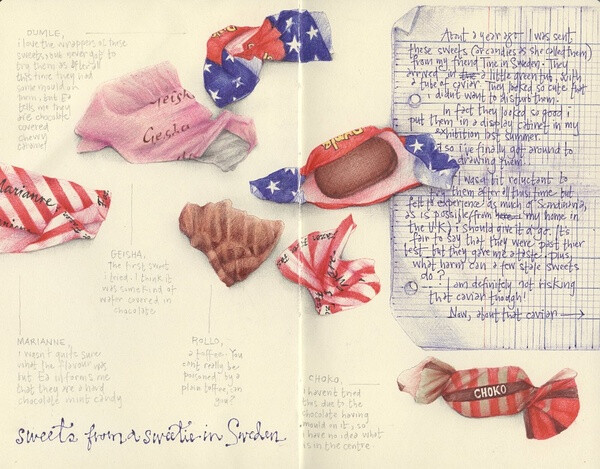 DUMLE,
i love the wrappers of these
sweets but never got to
try them as after all
this time they had
some mould on
them, but Ed
tells me they
are chocolate
covered
chewy
caramel
Geisha
Geisha
Marianne
GEISHA,
The first sweet
i tried. I think it
was some kind of
wafer covered in
chocolate
MARIANNE,
i wasn't quite sure
what the flavour was
but Ed informs me
that they are a hard
chocolate mint candy
ROLLO,
a toffee. You
cant really be
poisoned by a
plain toffee, can
you?
CHOKO,
i havent tried
this due to the
chocolate having
mould on it, so
i have no idea what
is in the centre.
CHOKO
sweets from a sweetie in Sweden
About a year ago I was sent
these sweets (or candies as she called them)
from my friend Tine in Sweden. They
arrived in a little green tub, with
a tube of caviar. They looked so cute that
i didnt want to disturb them.
In fact they looked so good i
put them in a display cabinet in my
exhibition last summer.
So i've finally got around to
drawing them.
I was a bit reluctant to
try them after all this time but
felt to experience as much of Scandinavia,
as is possible from my home in
the UK, i should give it a go. It's
fair to say that they were past their
best but they gave me a taste, plus,
what harm can a few stale sweets
do?
I am definitely not risking
that caviar though!
Now, about that caviar →